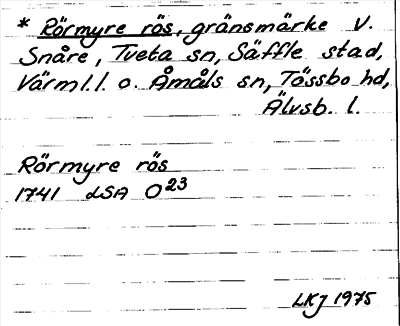 * Rörmyre rös, gränsmärke V.
Snåre, Tveta sn, Säffle stad,
Värml.l. o. Åmåls sn, Tössbo hd,
Älvsb. l.
Rörmyre rös
1741 LSA O23
LKJ 1975